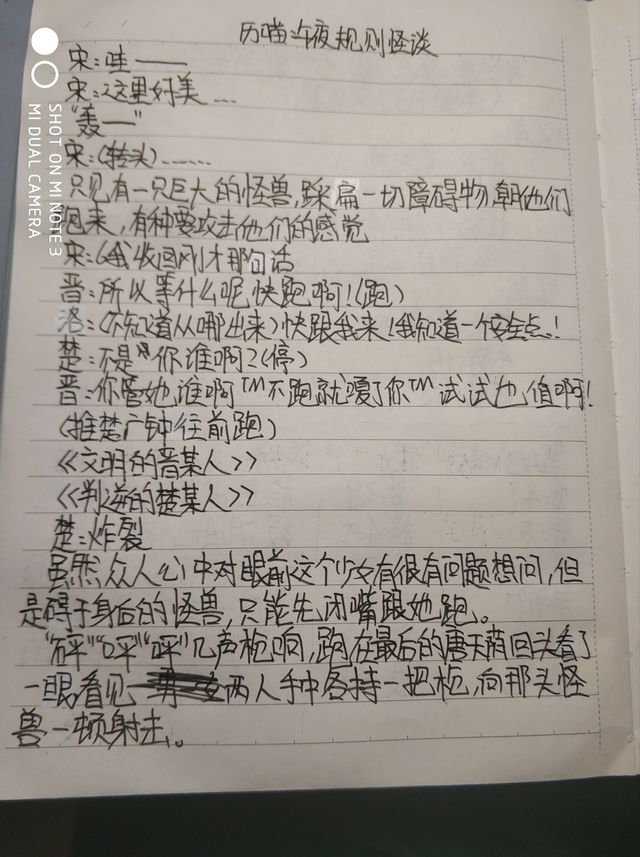 历喵:午夜规则怪谈
宋:哇——
宋:这里好美...
"轰—"
宋:(转头)......
只见有一只巨大的怪兽,踩扁一切障碍物,朝他们
回来,有种要攻击他们的感觉
宋:(我收回刚才那句话
晋:所以等什么呢,快跑啊!(跑)
洛:(不知道从哪出来)快跟我来!我知道一个安全点!
楚:不是,你谁啊?(停)
晋:你管她谁啊TM不跑就嘎了你TM试试也值啊!
(推楚广钟往前跑)
《文明的晋某人》
《判逆的楚某人》
楚:炸裂
虽然众人心中对眼前这个少女有很有问题想问,但
是碍于身后的怪兽,只能先闭嘴跟她跑。
"砰""呯""呯"几声枪响,跑在最后的唐天萌回头看了
一眼,看见两人手中各持一把枪,向那头怪
兽一顿射击。
SHOT ON MI NOTE 3
MI DUAL CAMERA